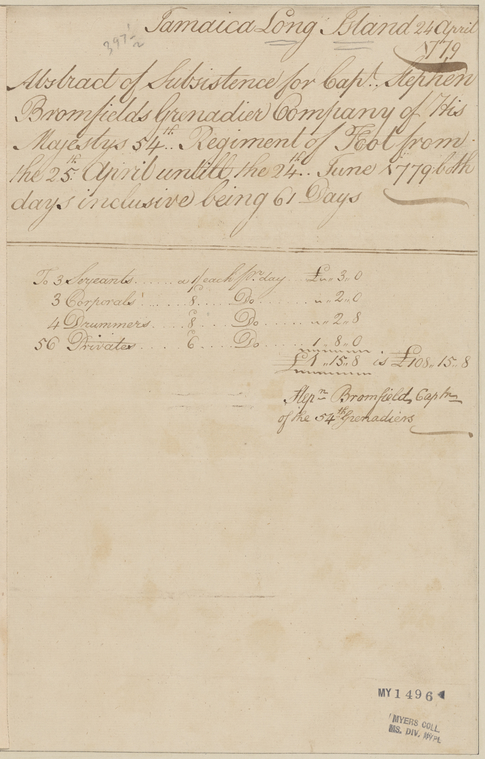 397½
Jamaica Long Island 24 April
1779
Abstract of Subsistence for Capt. Stephen
Bromfields Grenadier Company of His
Majestys 54th.. Regiment of Foot from
the 25th. April untill the 24th. June 1779 both
days inclusive being 61 Days
To 3 Serjeants ...... a 1/ each pr. day .... £ " 3 " 0
3 Corporals ...... 8 ..... Do ..... " 2 " 0
4 Drummers ..... 8 ..... Do ..... " 2 " 8
56 Privates ...... 6 ..... Do ..... 1 " 8 " 0
£1 " 15 " 8 is £108 " 15 " 8
Stepn Bromfield Captn
of the 54th Grenadiers
MY 1496
MYERS COLL.
MS. DIV. NYPL